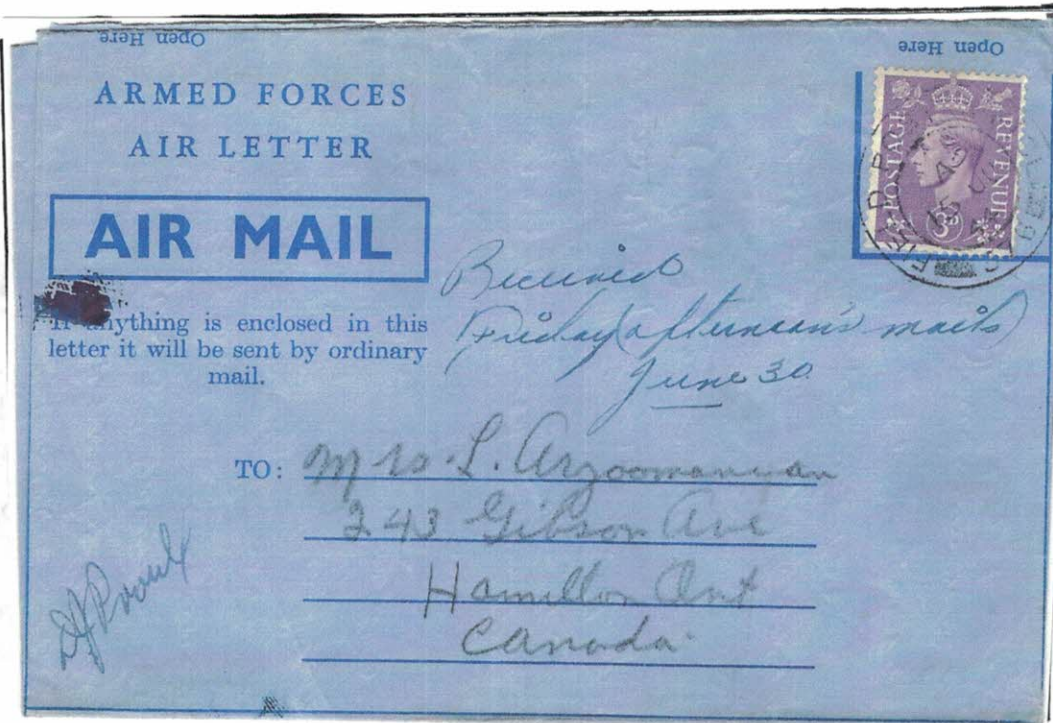 Open Here
Open Here
ARMED FORCES
AIR LETTER
AIR MAIL
If anything is enclosed in this
letter it will be sent by ordinary
mail.
POSTAGE REVENUE
3D
Received
Friday (afternoon's mail)
June 30
TO: Mrs. L. Arzoomanian
243 Gibson Ave
Hamilton Ont
Canada